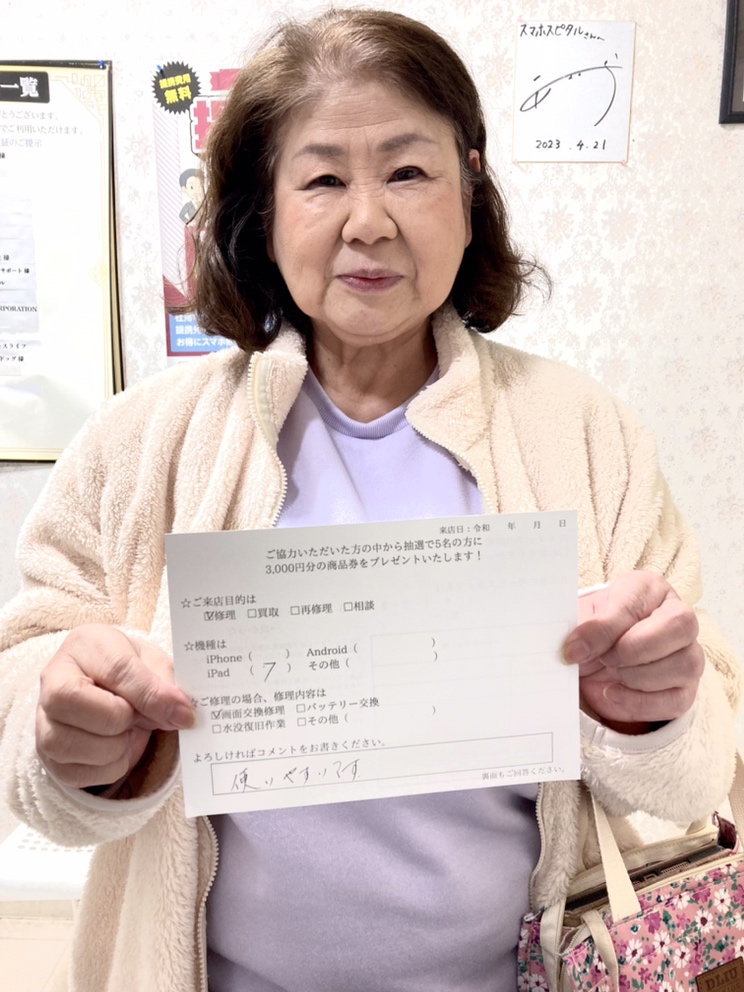 一覧
とうございます。
でご利用いただけます。
証のご提示
サポート 様
ORPORATION
スライフ
ドッグ 様
諸費用
無料
お得にスマホ
スマホスピタルさんへ
2023.4.21
来店日：令和　年　月　日
ご協力いただいた方の中から抽選で5名の方に
3,000円分の商品券をプレゼントいたします！
☆ご来店目的は
☑修理 □買取 □再修理 □相談
☆機種は
iPhone（　　） Android（　　）
iPad （ 7 ） その他（　　）
☆ご修理の場合、修理内容は
☑画面交換修理 □バッテリー交換
□水没復旧作業 □その他（　　）
よろしければコメントをお書きください。
使いやすいです
裏面もご回答ください。
DLIU